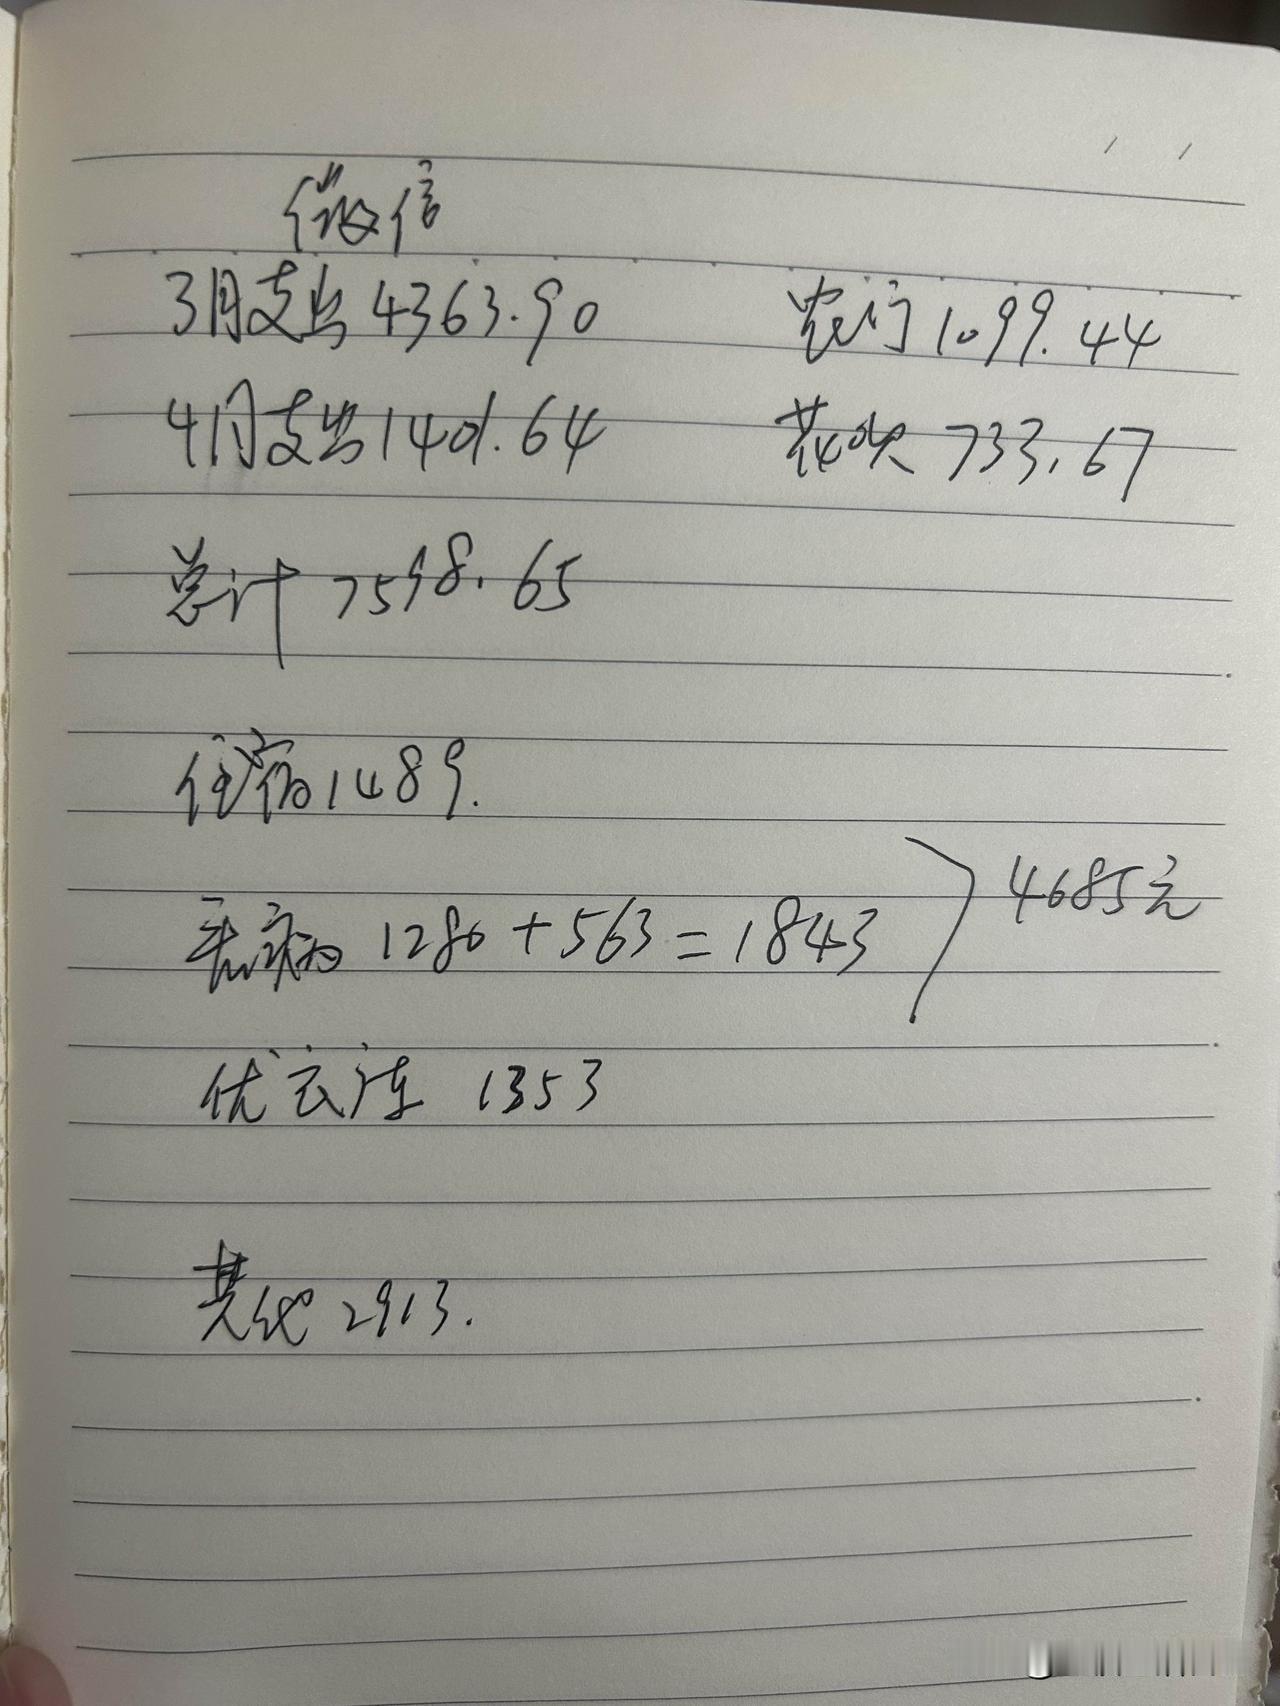 微信
3月支出 4363.90 1099.44
4月支出 1401.64 花呗 733.67
总计 7598.65
住宿 1489.
1280+563=1843
4685元
优衣库 1353
其他 2913.